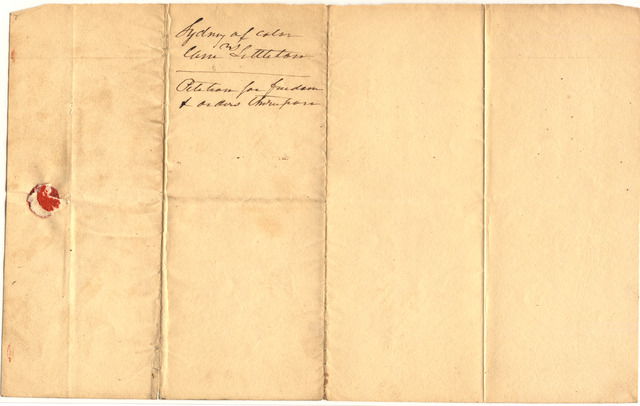 Sydney of Color
vs
Littleton
Petition for freedom
& orders thereupon